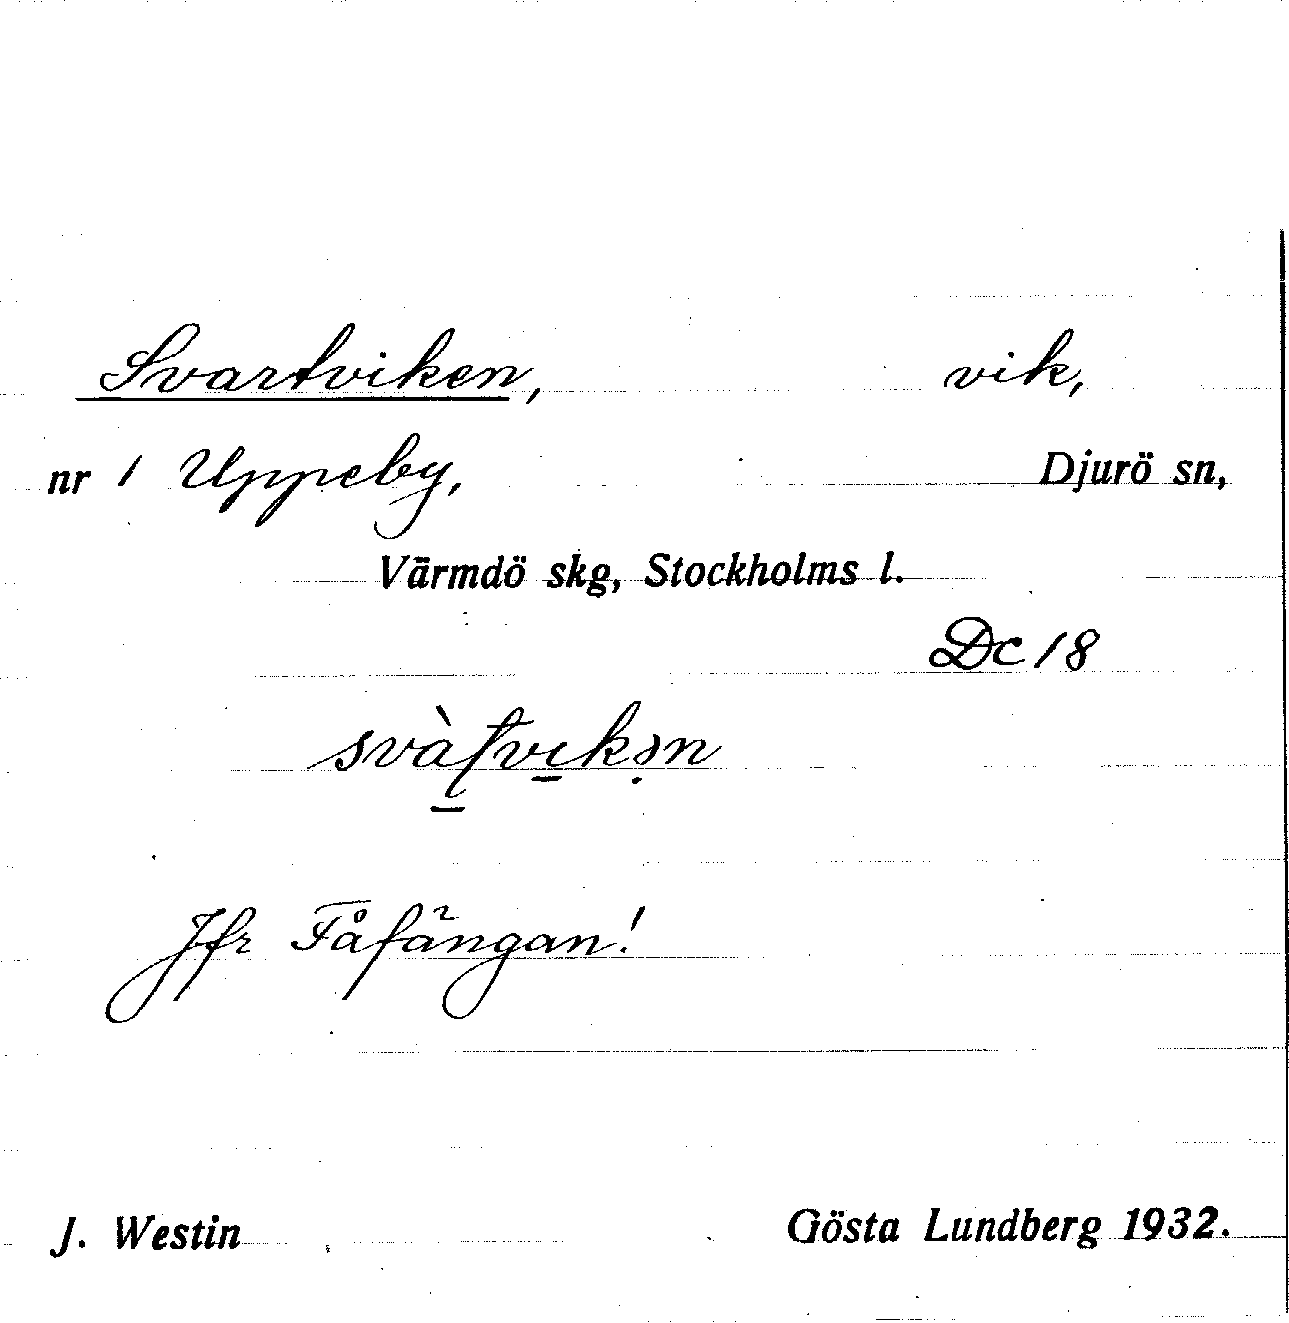 Svartviken, vik,
nr 1 Uppeby, Djurö sn,
Värmdö skg, Stockholms l.
Dc 18
Jfr Fåfängan!
J. Westin Gösta Lundberg 1932.